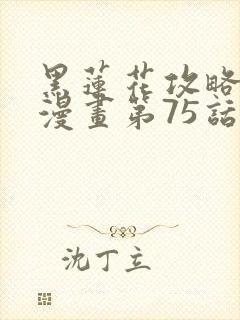 黑蓮花攻略
漫畫第75話
沈丁立